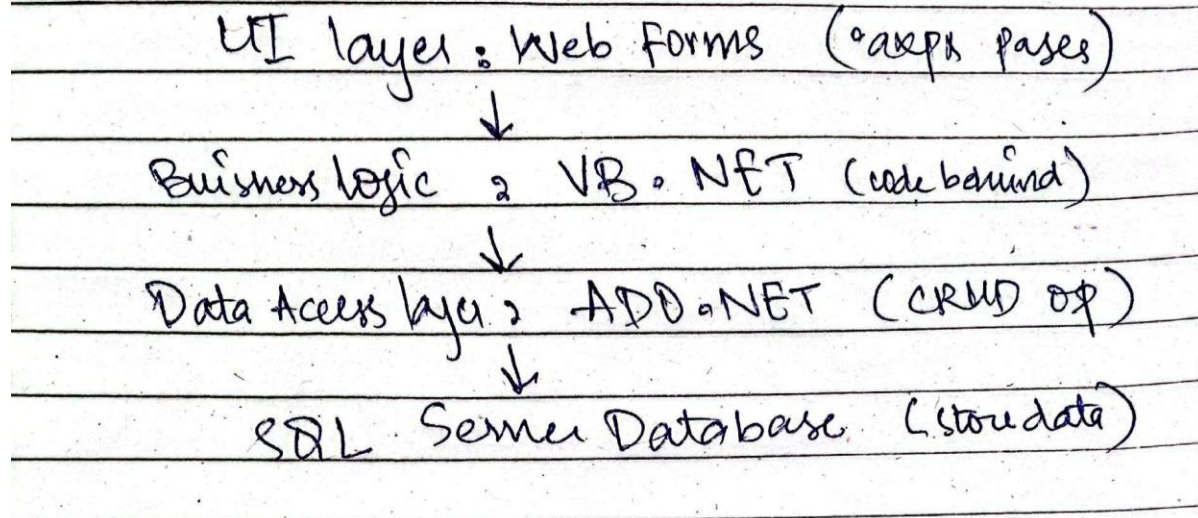 UI layer : Web Forms (.aspx pages)
↓
Buisness logic : VB.NET (code behind)
↓
Data Access layer : ADO.NET (CRUD op)
↓
SQL Server Database (store data)